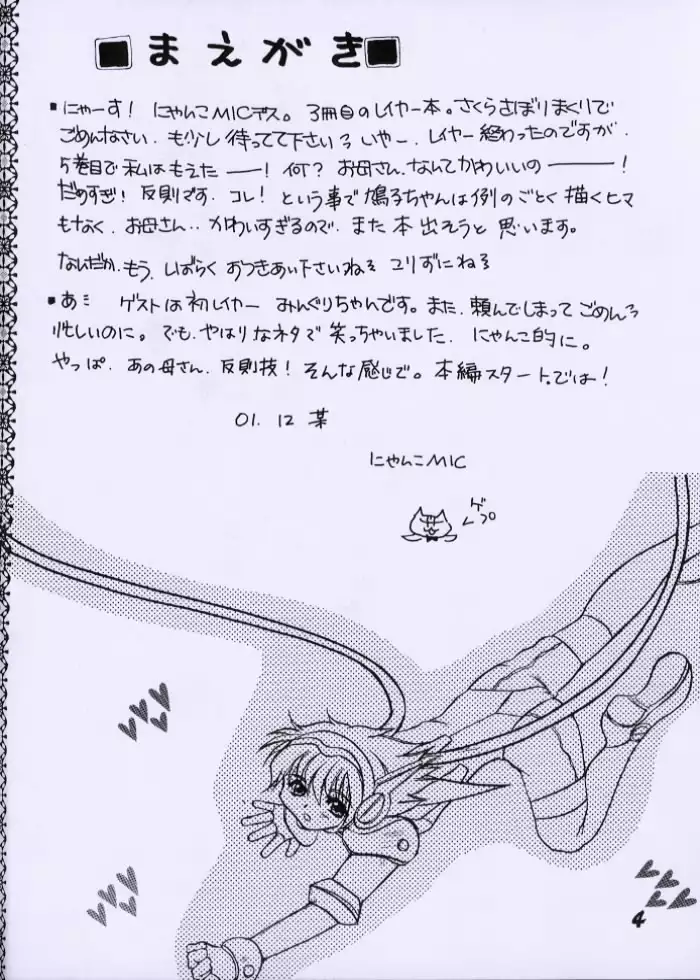 まえがき
▪にゃーす! にゃんこMICデス。3冊目のレイヤー本。さくらさぼりまくりで
ごめんなさい、も少し待ってて下さいろ いやー、レイヤー終わったのですが、
5巻目で私はもえたーー! 何? お母さん、なんてかわいいのーーー!
だめすぎ! 反則です、コレ! という事で鳩子ちゃんは例のごとく描くヒマ
もなく、お母さん‥かわいすぎるので、また本出そうと思います。
なんだか、もう、しばらくおつきあい下さいね こりずにね
▪あ ゲストは初レイヤー みんぐりちゃんです。また、頼んでしまってごめん
忙しいのに。でも、やはりなネタで笑っちゃいました、にゃんこ的に。
やっぱ、あの母さん、反則技! そんな感じで。本編スタート。では!
01.12 某
にゃんこMIC
ゲ
プ
4